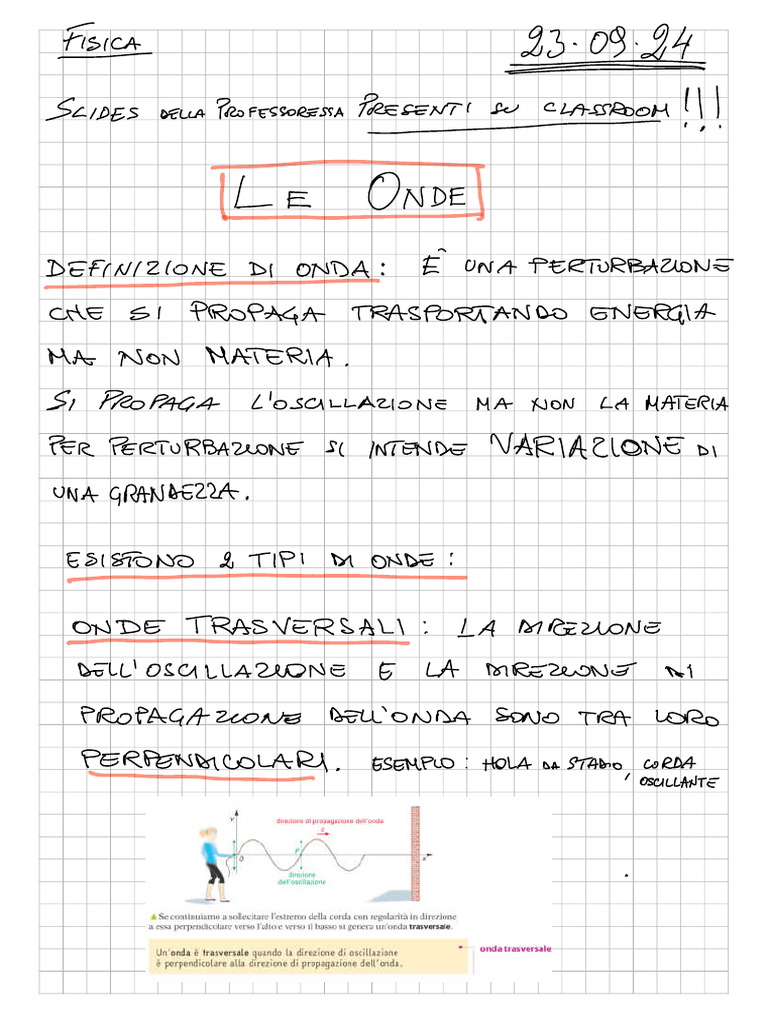 FISICA
23.09.24
SLIDES DELLA PROFESSORESSA PRESENTI SU CLASSROOM!!!
LE ONDE
DEFINIZIONE DI ONDA: È UNA PERTURBAZIONE
CHE SI PROPAGA TRASPORTANDO ENERGIA
MA NON MATERIA.
SI PROPAGA L'OSCILLAZIONE MA NON LA MATERIA
PER PERTURBAZIONE SI INTENDE VARIAZIONE DI
UNA GRANDEZZA.
ESISTONO 2 TIPI DI ONDE:
ONDE TRASVERSALI: LA DIREZIONE
DELL'OSCILLAZIONE E LA DIREZIONE DI
PROPAGAZIONE DELL'ONDA SONO TRA LORO
PERPENDICOLARI. ESEMPIO: HOLA DA STADIO, CORDA
OSCILLANTE
y
direzione di propagazione dell'onda
P
O
x
direzione
dell'oscillazione
▲ Se continuiamo a sollecitare l'estremo della corda con regolarità in direzione
a essa perpendicolare verso l'alto e verso il basso si genera un'onda trasversale.
Un'onda è trasversale quando la direzione di oscillazione
è perpendicolare alla direzione di propagazione dell'onda.
onda trasversale